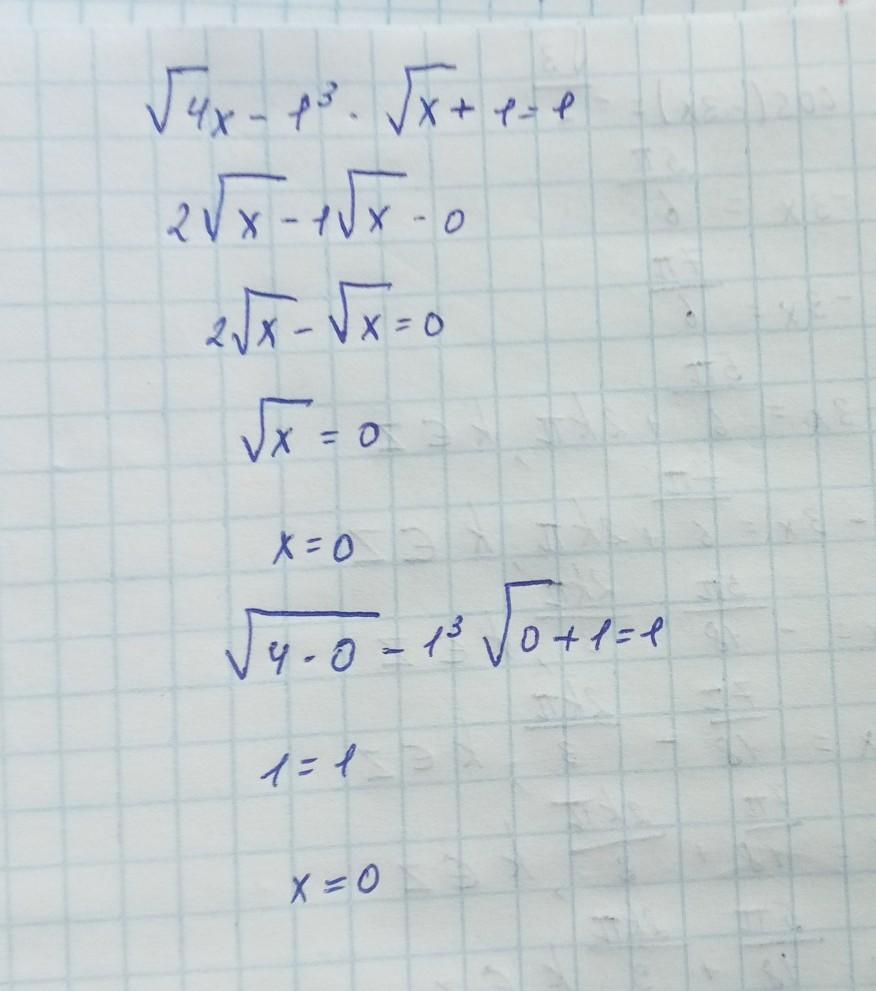 √4x - 1³ · √x + 1 = 1
2√x - 1√x - 0
2√x - √x = 0
√x = 0
x = 0
√4 · 0 - 1³ √0 + 1 = 1
1 = 1
x = 0